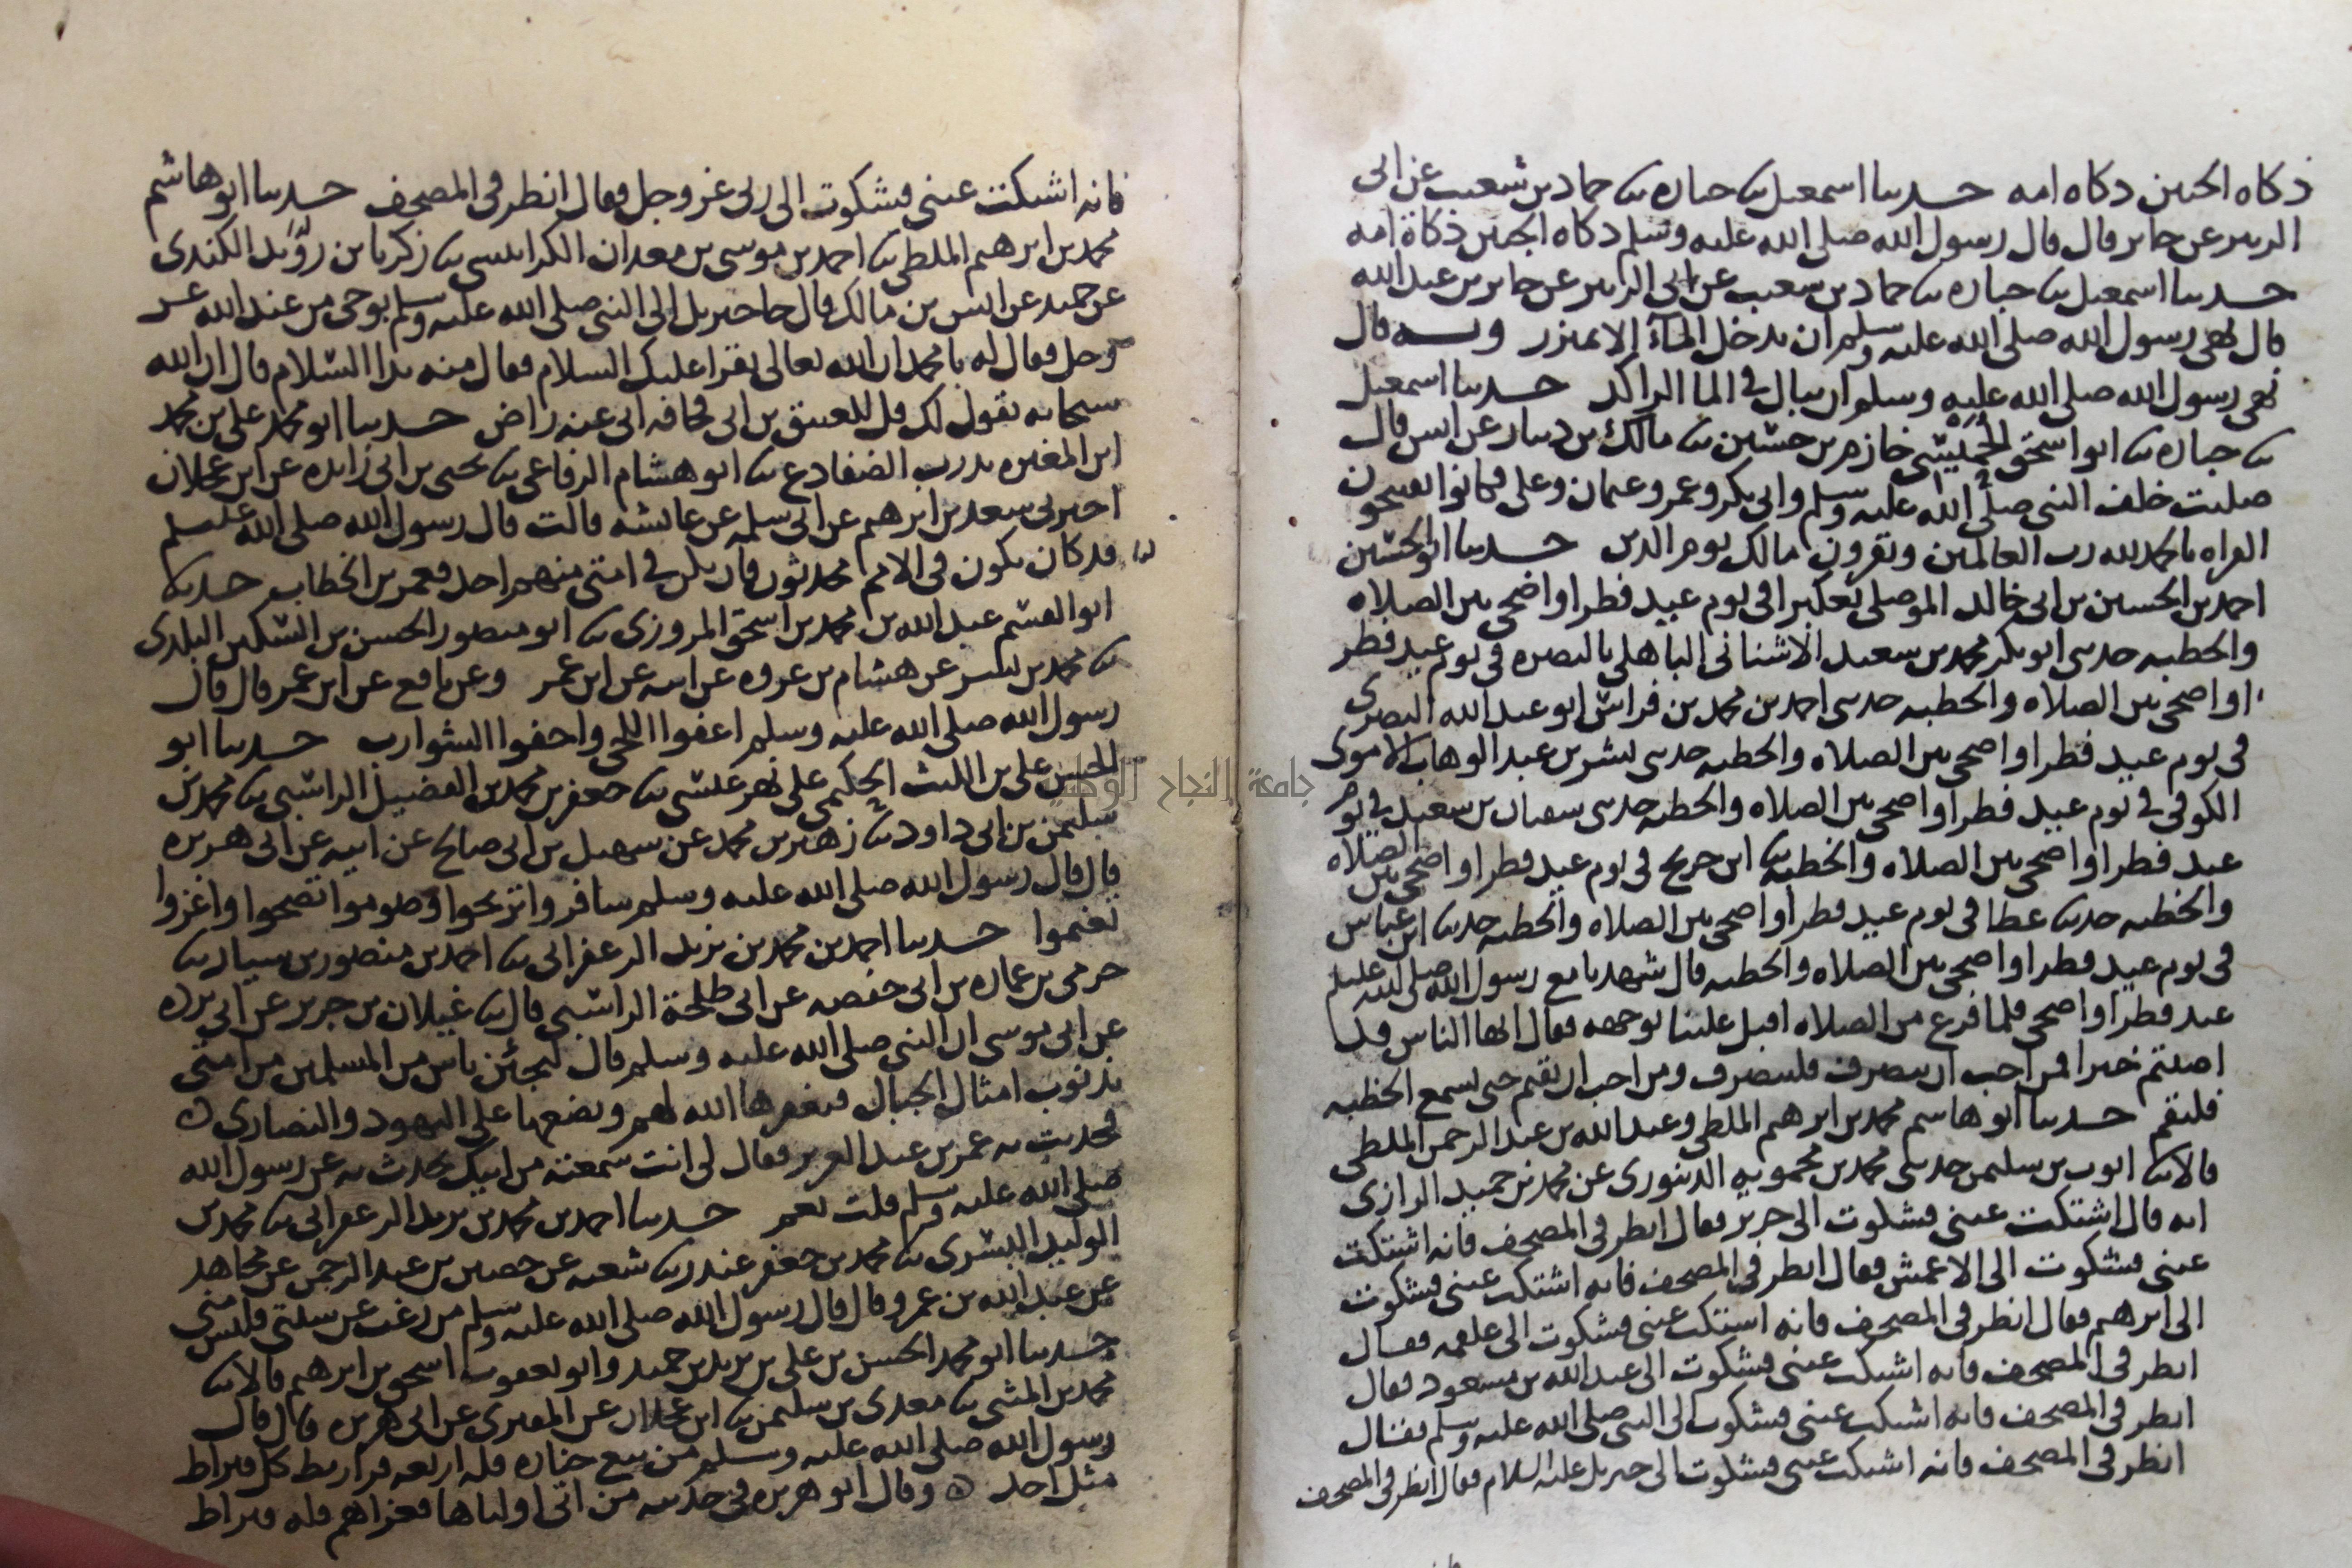 ذكاه الحنين دكاه امه حدسا اسمعيل سا حباره سا حماد بن شعيب عن ابى
الربير عن جابر قال قال رسول الله صلى الله عليه وسلم دكاه الجنين ذكاة امه
حدسا اسمعيل سا حباره سا حماد بن سعيب عن ابى الربير عن جابر بن عبد الله
قال نهى رسول الله صلى الله عليه وسلم ان يدخل المآء الا بميزر وبه قال
نهى رسول الله صلى الله عليه وسلم ان يبال في الما الراكد حدسا اسمعيل
سا حباره سا ابو اسحق الحميسي خازم بن حسين سا مالك بن دينار عن انس قال
صليت خلف النبي صلى الله عليه وسلم وابى بكر وعمر وعثمان وعلى فكانوا يفتتحون
القراه بالحمد لله رب العالمين ويقرون مالك يوم الدين حدسا ابو الحسين
احمد بن الحسين بن ابى خالد الموصلى بعكبرا فى يوم عيد فطر او اضحى بين الصلاه
والخطبه حدثنى ابو بكر محمد بن سعيد الاشنانى الباهلى بالبصره فى يوم عيد فطر
او اضحى بين الصلاه والخطبه حدثنى احمد بن محمد بن فراش ابو عبد الله البصرى
فى يوم عيد فطر او اضحى بين الصلاه والخطبه حدثنى بشر بن عبد الوهاب الاموى
الكوفى في يوم عيد فطر او اضحى بين الصلاه والخطبه حدثنى سفيان بن سعيد في يوم
عيد فطر او اضحى بين الصلاه والخطبه سا ابن جريج فى يوم عيد فطر او اضحى بين الصلاه
والخطبه حدثنا عطا فى يوم عيد فطر او اضحى بين الصلاه والخطبه حدثنا ابن عباس
فى يوم عيد فطر او اضحى بين الصلاه والخطبه قال شهدنا مع رسول الله صلى الله عليه وسلم
عيد فطر او اضحى فلما فرغ من الصلاه اقبل علينا بوجهه فقال ايها الناس قد
اصبتم خيرا فمن احب ان ينصرف فلينصرف ومن احب ان يقيم حتى يسمع الخطبه
فليقم حدسا ابو هاشم محمد بن ابرهيم الملطى وعبد الله بن عبد الرحمن الملطى
قالا سا ايوب بن سليمن حدثنى محمد بن محمويه الدينورى عن محمد بن حميد الرازى
انه قال اشتكت عينى فشكوت الى جرير فقال انظر فى المصحف فانه اشتكت
عينى فشكوت الى الاعمش فقال انظر فى المصحف فانه اشتكت عينى فشكوت
الى ابرهيم فقال انظر فى المصحف فانه اشتكت عينى فشكوت الى علقمه فقال
انظر فى المصحف فانه اشتكت عينى فشكوت الى عبد الله بن مسعود فقال
انظر فى المصحف فانه اشتكت عينى فشكوت الى النبى صلى الله عليه وسلم فقال
انظر فى المصحف فانه اشتكت عينى فشكوت الى جبريل عليه السلام فقال انظر فى المصحف
فانه اشتكت عينى فشكوت الى ربى عز وجل فقال انظر فى المصحف حدسا ابو هاشم
محمد بن ابرهيم الملطى سا احمد بن موسى بن معدان الكرابيسى سا زكريا بن رويد الكندى
عن حميد عن انس بن مالك قال جا جبريل الى النبى صلى الله عليه وسلم بوحى من عند الله عز
وجل فقال له يا محمد ان الله تعالى يقرا عليك السلام فقال منه بدا السلام قال ان الله
سبحانه يقول لك قل للعتيق بن ابى قحافه انى عنه راض حدسا ابو محمد على بن محمد
ابن المغيره بدرب الضفادع سا ابو هشام الرفاعى سا يحيى بن ابى زايده عن ابن عجلان
اخبرنى سعد بن ابرهيم عن ابى سلمه عن عايشه قالت قال رسول الله صلى الله عليه وسلم
قد كان يكون فى الامم محدثون فان يكن في امتى منهم احد فعمر بن الخطاب حدسا
ابو القسم عبد الله بن محمد بن اسحق المروزى سا ابو منصور الحسن بن السكين البلدى
سا محمد بن بشر عن هشام بن عروه عن ابيه عن ابن عمر وعن نافع عن ابن عمر قال قال
رسول الله صلى الله عليه وسلم اعفوا اللحى واحفوا الشوارب حدسا ابو
الحسن على بن الليث الحكيمى على نهر عيسى سا جعفر بن محمد بن الفضيل الراسبى سا محمد بن
سليمن بن ابى داود سا زهير بن محمد عن سهيل بن ابى صالح عن ابيه عن ابى هريره
قال قال رسول الله صلى الله عليه وسلم سافروا تربحوا وصوموا تصحوا واغزوا
تغنموا حدسا احمد بن محمد بن يزيد الزعفرانى سا احمد بن منصور بن سيار سا
حرمى بن عماره بن ابى حفصه عن ابى طلحة الراسبى قال سا غيلان بن جرير عن ابى برده
عن ابى موسى ان النبى صلى الله عليه وسلم قال ليجئن ناس من المسلمين من امتى
بذنوب امثال الجبال فيغفرها الله لهم ويضعها على اليهود والنصارى ه
فحدثت به عمر بن عبد العزيز فقال لى انت سمعته من ابيك يحدث به عن رسول الله
صلى الله عليه وسلم قلت نعم حدسا احمد بن محمد بن يزيد الزعفرانى سا محمد بن
الوليد البسرى سا محمد بن جعفر غندر سا شعبه عن حصين بن عبد الرحمن عن مجاهد
عن عبد الله بن عمرو قال قال رسول الله صلى الله عليه وسلم من رغب عن سنتى فليس منى
حدسا ابو محمد الحسن بن على بن يزيد بن حميد وابو يعقوب اسحق بن ابرهيم قالا سا
محمد بن المثنى سا معدى بن سليمن سا ابن عجلان عن المقبرى عن ابى هريره قال قال
رسول الله صلى الله عليه وسلم من تبع جنازه فله اربعه قراريط كل قيراط
مثل احد ه وقال ابو هريره فى حديثه من اتى اولياها فعزاهم فله قيراط
جامعة النجاح الوطنية